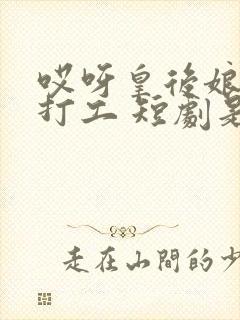 哎呀皇後娘
打工 短劇是
走在山間的少